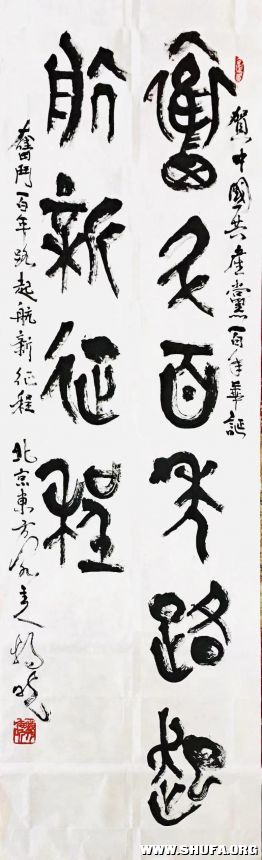 賀中國共產黨一百年華誕
奮鬥百年路起
航新征程
奮鬥百年路起航新征程 北京東方
WWW.SHUFA.ORG